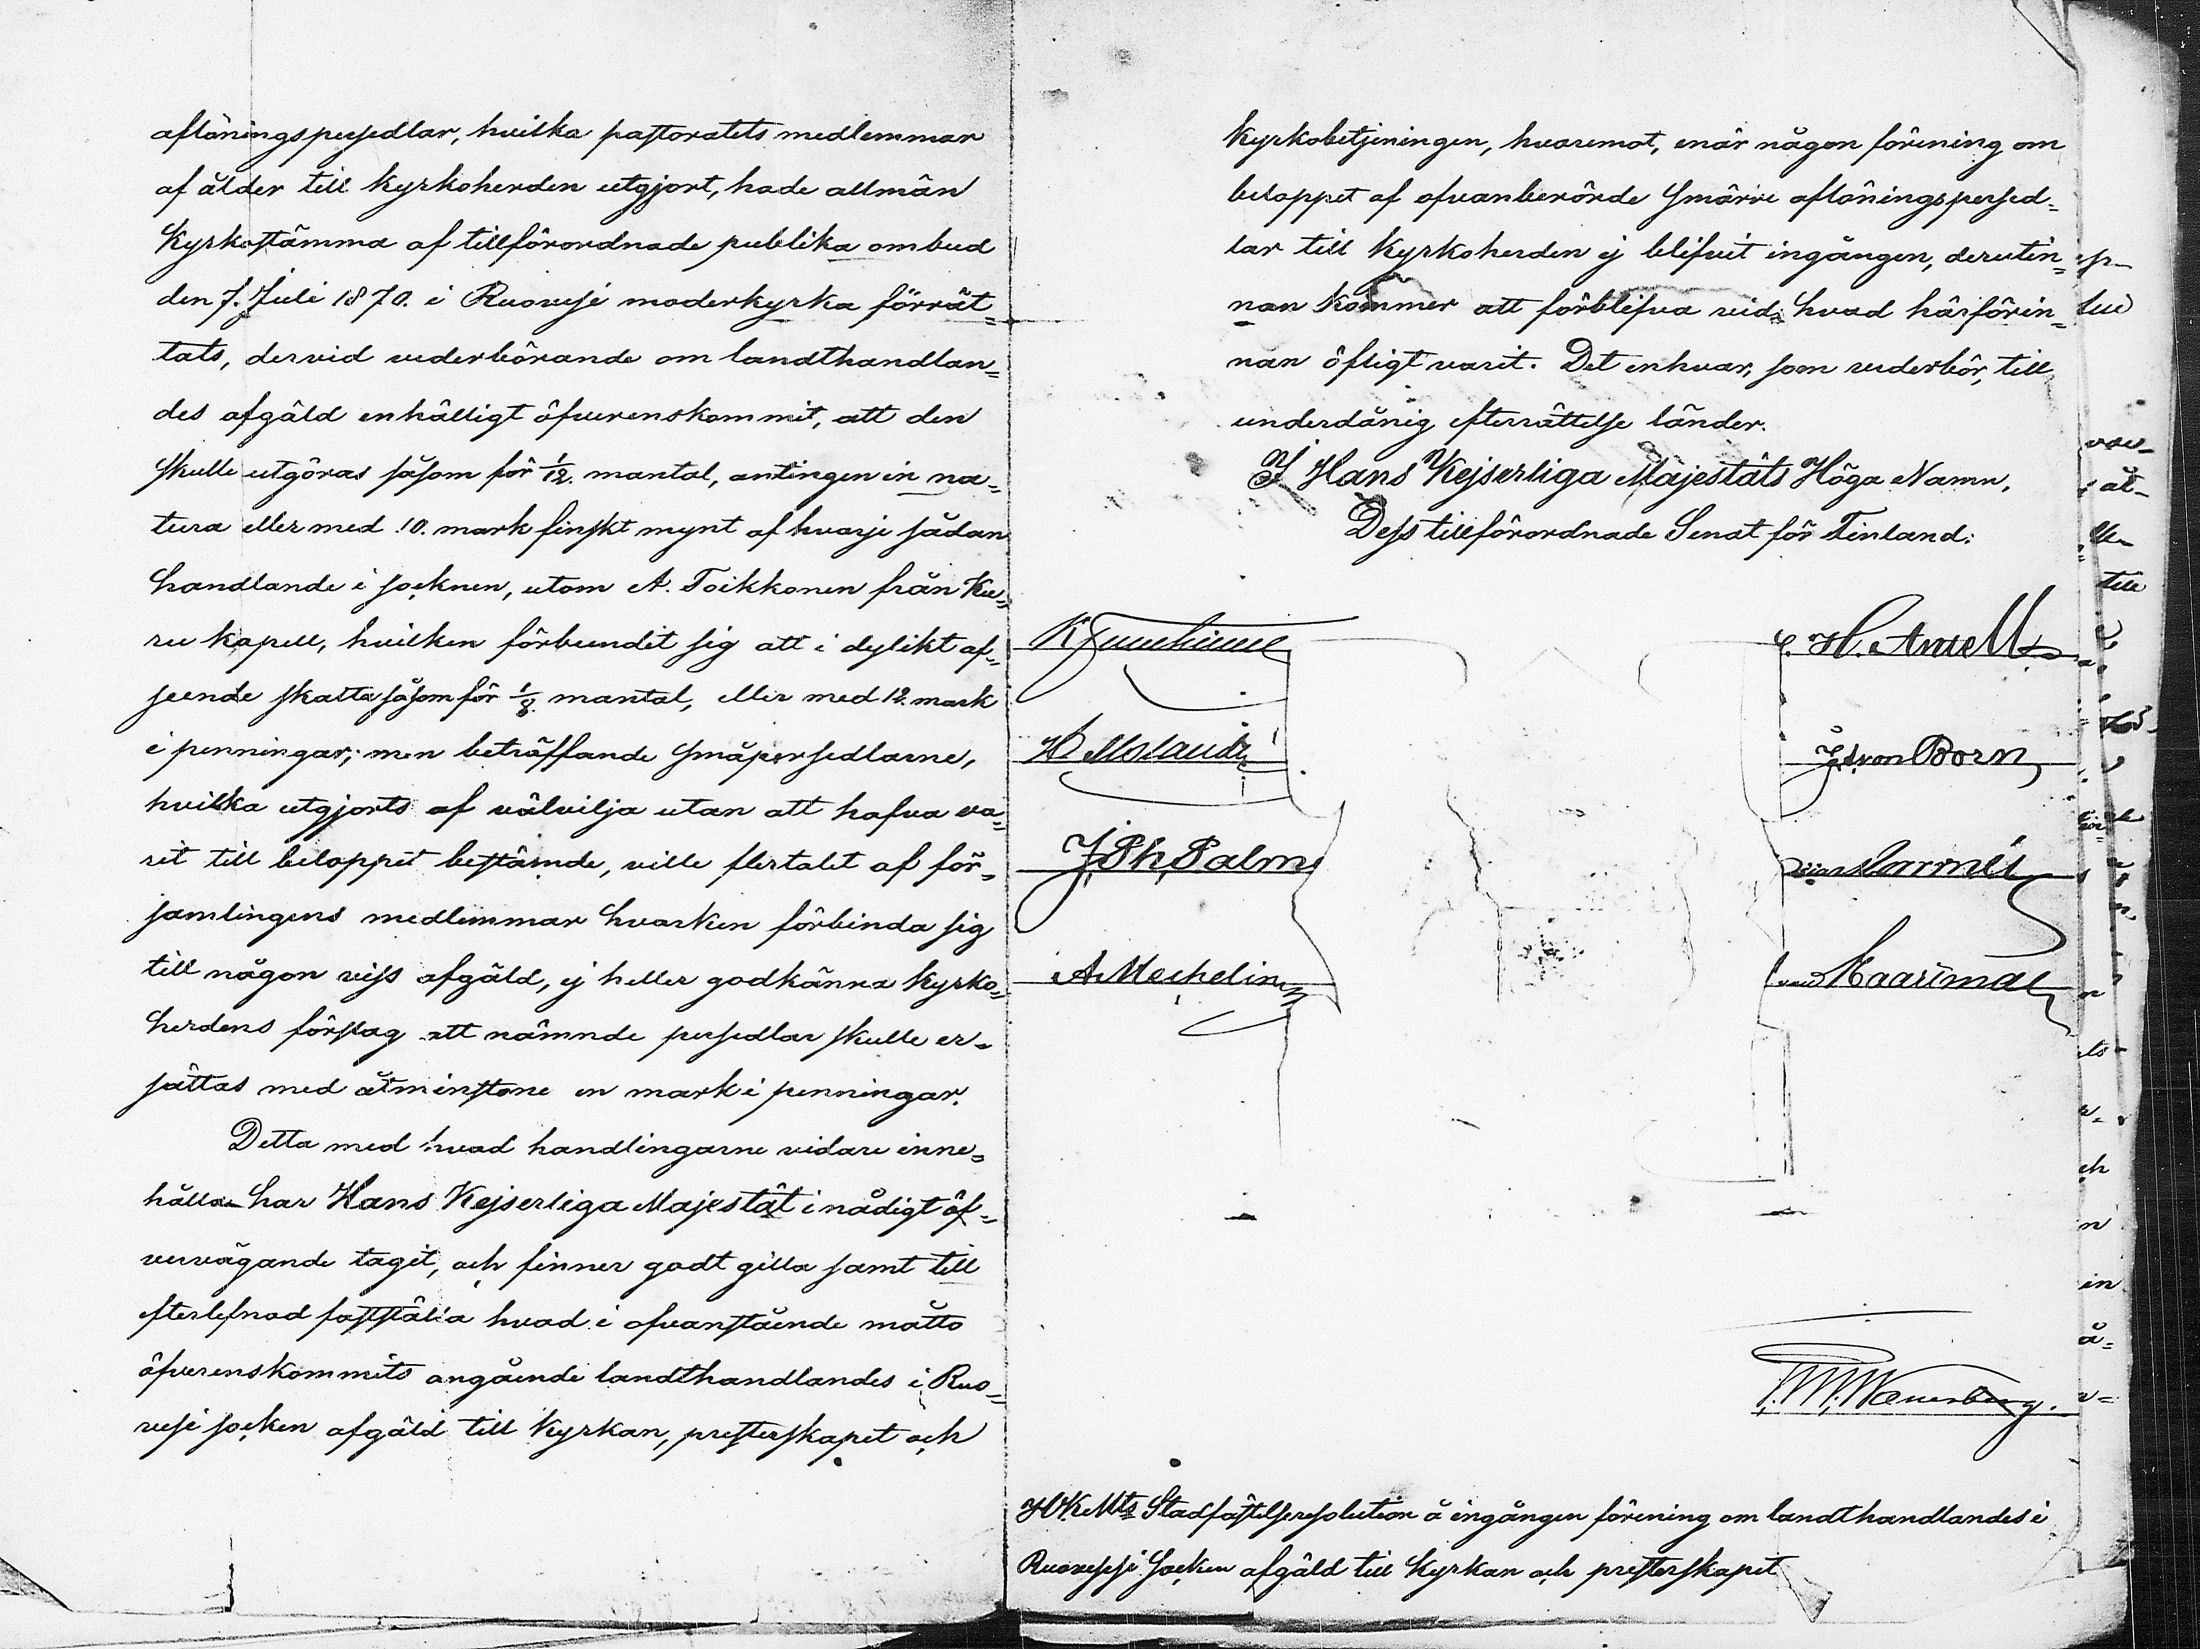 aflöningspersedlar, hvilka pastoratets medlemmar
af ålder till Kyrkoherden utgjort, hade allmän
Kyrkostämma af tillförordnade publika ombud
den 7. Juli 1870. i Ruovesi moderkyrka förrät=
tats, dervid vederbörande om landthandlan=
des afgäld enhälligt öfverenskommit, att den
skulle utgöras såsom för 1/12. mantal, antingen in na=
tura eller med 10. mark finskt mynt af hvarje sådan
handlande i socknen, utom A. Toikkonen från Ku=
ru kapell, hvilken förbundit sig att i dylikt af=
seende skatta såsom för 1/8. mantal, eller med 12. mark
i penningar; men beträffande småpersedlarne,
hvilka utgjorts af välvilja utan att hafva va=
rit till beloppet bestämde, ville flertalet af för=
samlingens medlemmar hvarken förbinda sig
till någon viss afgäld, ej heller godkänna Kyrko=
herdens förslag att nämnde persedlar skulle er=
sättas med åtminstone en mark i penningar.
Detta med hvad handlingarne vidare inne=
hålla har Hans Kejserliga Majestät i nådigt öf=
vervägande tagit, och finner godt gilla samt till
efterlefnad fastställa hvad i ofvanstående måtto
öfverenskommits angående landthandlandes i Ruo=
vesi socken afgäld till Kyrkan, presterskapet och
Kyrkobetjeningen, hvaremot, enär någon förening om
beloppet af ofvanberörde smärre aflöningspersed=
lar till Kyrkoherden ej blifvit ingången, derutin=
nan kommer att förblifva vid hvad härförin=
nan öfligt varit. Det enhvar, som vederbör, till
underdånig efterrättelse länder.
I Hans Kejserliga Majestäts Höga Namn,
Dess tillförordnade Senat för Finland:
H. Antell
H Molander
von Born
J. Ph. Palmn
A. Mechelin
HKeMts Stadfästelseresolution å ingången förening om landthandlandes i
Ruovessi Socken afgäld till Kyrkan och presterskapet